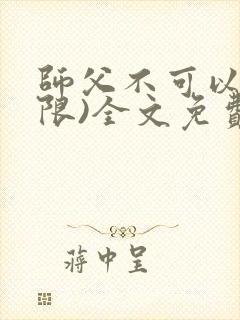 師父不可以
限)全文免費
蔣中呈